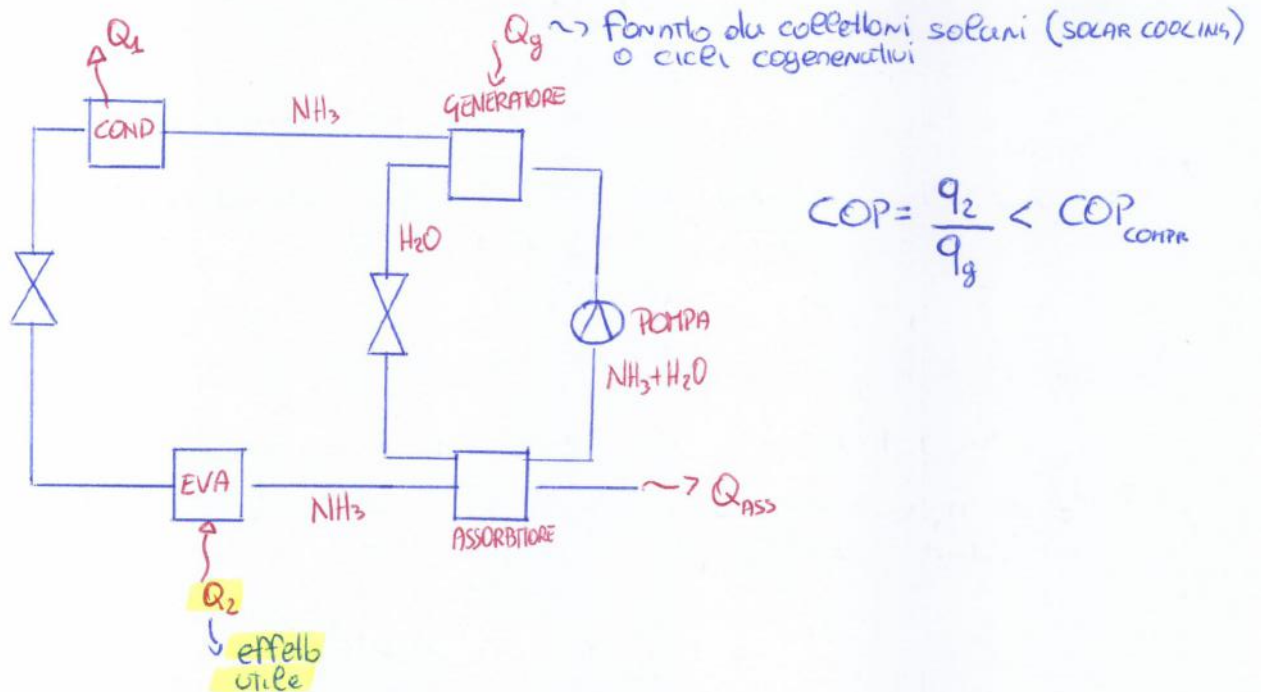 Q1
Qg ~> fornito da collettori solari (SOLAR COOLING)
o cicli cogenerativi
COND
NH3
GENERATORE
COP = q2 / qg < COP COMPR
H2O
POMPA
NH3+H2O
EVA
NH3
ASSORBITORE
~> QASS
Q2
effetto
utile